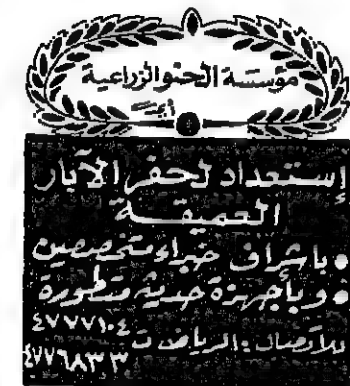 مؤسسة الحنو الزراعية
إستعداد لحفر الآبار
العميقة
• باشراف خبراء متخصصين
• وبأجهزة حديثة متطورة
٤٧٧٧١٠٤
للاتصال: الرياض ت
٤٧٧٦٨٣٣